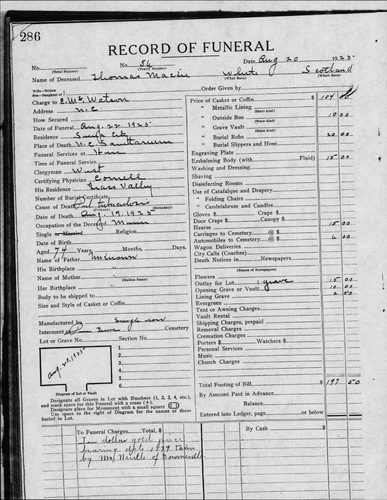 286
RECORD OF FUNERAL
No. No. 54 Date Aug 20 1925
(Total Number) (Yearly Number)
Name of Deceased Thomas White Scotland
(What Race) (Where Born)
Order Given by
Charge to E. Mc Watson
Address N.C.
How Secured
Date of Funeral Aug. 22 1925
Place of Death N.C. Sanitarium
Funeral Services at
Time of Funeral Service
Clergyman West
Certifying Physician
His Residence Grass Valley
Number of Burial Certificate
Cause of Death
Date of Death Aug 19, 1925
Occupation of the Deceased Miner
Single or Married Religion
Date of Birth
Aged 74 Years, Months, Days.
Name of Father Unknown
His Birthplace
Name of Mother
(Maiden Name)
Her Birthplace
Body to be shipped to
Size and Style of Casket or Coffin
Manufactured by
Interment at Cemetery
Lot or Grave No. Section No.
Aug 22, 1925
Diagram of Lot or Vault
Designate all Graves in Lot with Numbers (1, 2, 3, 4, etc.),
and mark space for this Funeral with a cross (+).
Designate place for Monument with a small square
Use space to right for the names of those
buried in Lot.
Price of Casket or Coffin $ 104
" Metallic Lining
" Outside Box 10 00
" Grave Vault
" Burial Robe 20 00
" Burial Slippers and Hose
Engraving Plate
Embalming Body (with Fluid) 15 00
" Washing and Dressing
Shaving
Disinfecting Rooms
Use of Catafalque and Drapery
" Folding Chairs
" Candelabrum and Candles
Gloves $ Crape $
Door Crape $ Canopy $
Hearse 15 00
Carriages to Cemetery @ $
Automobiles to Cemetery @ $
Wagon Deliveries
City Calls (Coaches)
Death Notices in Newspapers
(Names of Newspapers)
Flowers
Outlay for Lot 1 grave 15 00
Opening Grave or Vault 10 00
Lining Grave 2 50
Evergreen
Tent or Awning Charges
Vault Rental
Shipping Charges
Cremation Charges
Porters $ Watchers $
Personal Services
Music
Church Charges
Total Footing of Bill $ 197 50
By Amount Paid in Advance
Balance
Entered into Ledger, page or below
To Funeral Charges, Total $
Ten dollar gold piece
taken
by Mr. of Downieville
By Cash $